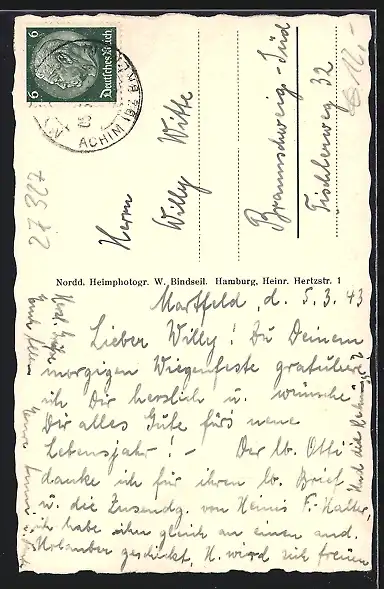 6
Deutsches Reich
6
ACHIM (BZ BREMEN)
Herrn
Willy Witte
Braunschweig-Süd
Fischerweg 32
12,-
27327
Nordd. Heimphotogr. W. Bindseil. Hamburg, Heinr. Hertzstr. 1
Martfeld, d. 5.3.43
Lieber Willy! Zu Deinem
morgigen Wiegenfeste gratuliere
ich Dir herzlich u. wünsche
Dir alles Gute fürs neue
Lebensjahr! - Der lb. Otti
danke ich für ihren lb. Brief
u. die Zusendg. von Heinis F.-Halter,
ich habe ihn gleich an einen and.
Urlauber geschickt, H. wird sich freuen
Herzl. Grüße
Euch allen
Eure